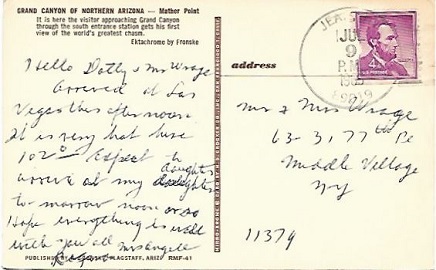 GRAND CANYON OF NORTHERN ARIZONA — Mather Point
It is here the visitor approaching Grand Canyon
through the south entrance station gets his first
view of the world's greatest chasm.
Ektachrome by Fronske
Hello Dotty & Mr Wrage
arrived at Las
Vegas this afternoon
It is very hot here
102° Expect to
arrive at my daughters
to morrow noon or so
Hope everything is well
with you all
PUBLISHED BY
FLAGSTAFF, ARIZ. RMF-41
address
JUL
9
PM
U.S. POSTAGE
Mr & Mrs Wrage
63-31 77th Pl
Middle Village
NY
11379